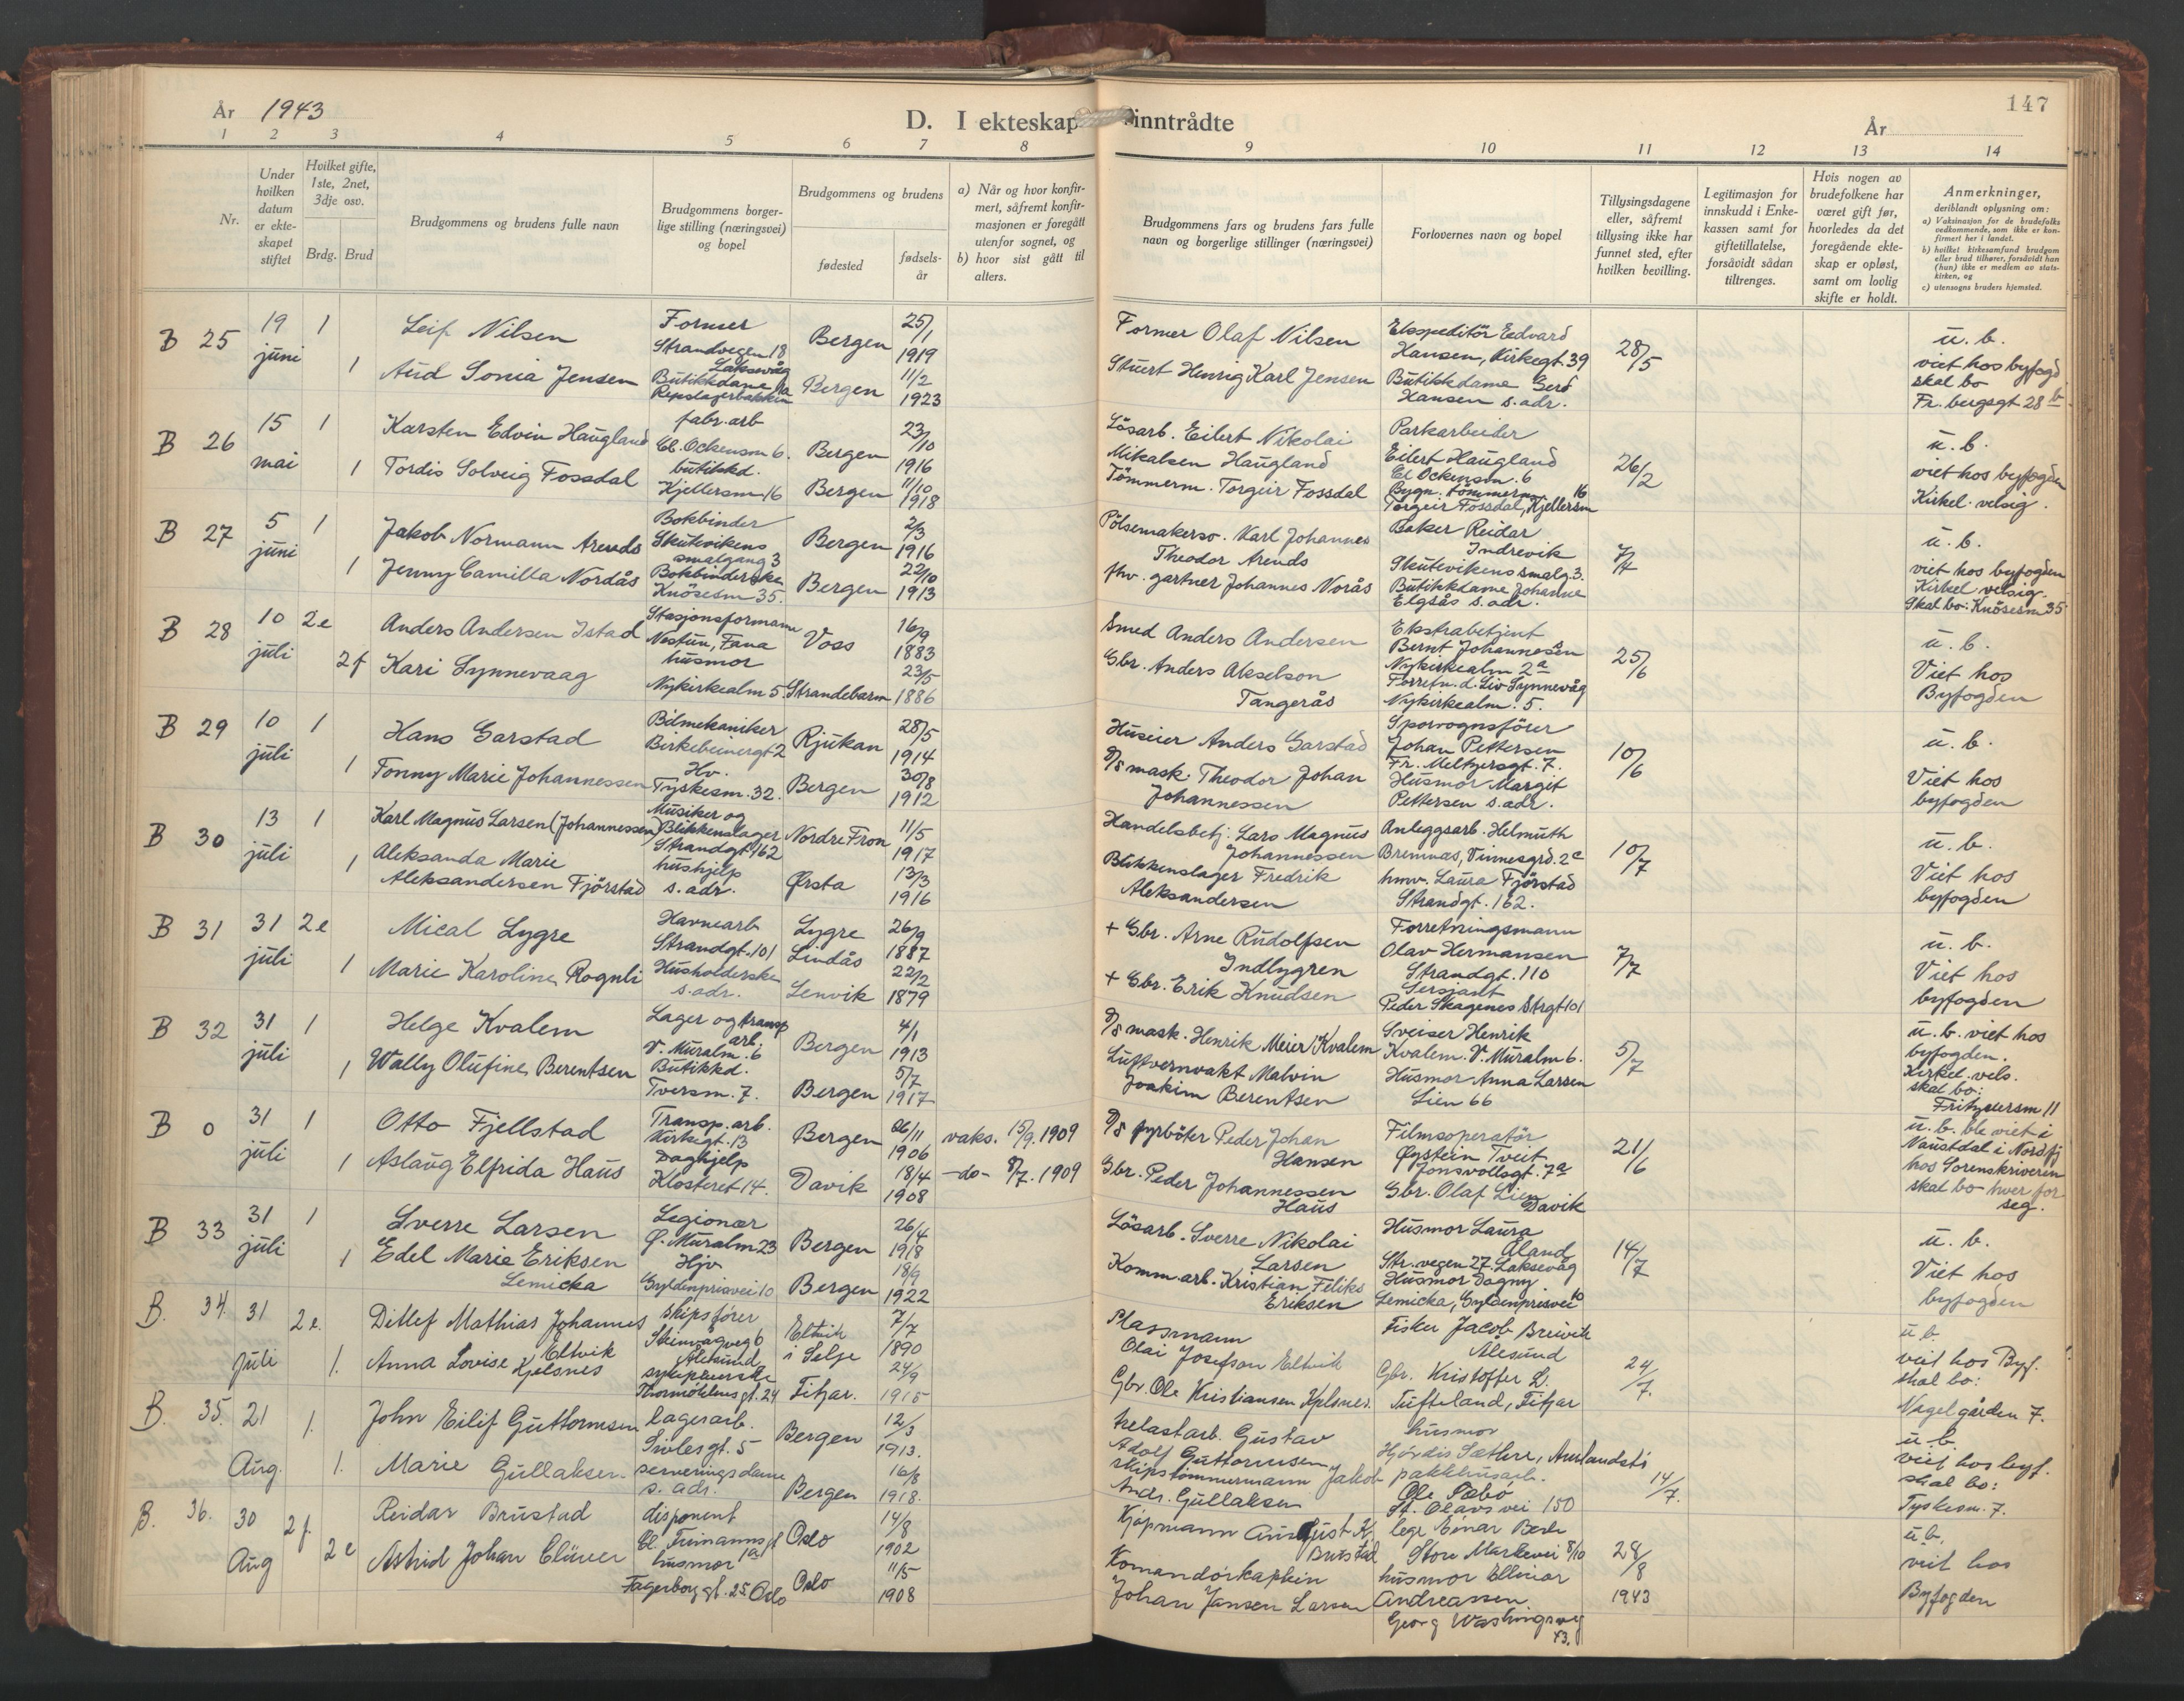 147
År 1943
D. I ekteskap inntrådte
År
1 2 3 4 5 6 7 8 9 10 11 12 13 14
Nr.
Under hvilken datum er ekteskapet stiftet
Hvilket gifte, 1ste, 2net, 3dje osv.
Brdg. Brud
Brudgommens og brudens fulle navn
Brudgommens borgerlige stilling (næringsvei) og bopel
Brudgommens og brudens
fødested
fødselsår
a) Når og hvor konfirmert, såfremt konfirmasjonen er foregått utenfor sognet, og
b) hvor sist gått til alters.
Brudgommens fars og brudens fars fulle navn og borgerlige stillinger (næringsvei)
Forlovernes navn og bopel
Tillysingsdagene eller, såfremt tillysing ikke har funnet sted, efter hvilken bevilling.
Legitimasjon for innskudd i Enkekassen samt for giftetillatelse, forsåvidt sådan tiltrenges.
Hvis nogen av brudefolkene har været gift før, hvorledes da det foregående ekteskap er opløst, samt om lovlig skifte er holdt.
Anmerkninger, deriblandt oplysning om:
a) Vaksinasjon for de brudefolks vedkommende, som ikke er konfirmert her i landet.
b) hvilket kirkesamfund brudgom eller brud tilhører, forsåvidt han (hun) ikke er medlem av statskirken, og
c) utensogns bruders hjemsted.
B 25 19 juni 1 Leif Nilsen Former Strandvegen 18 Laksevåg Bergen 25/1 1919
1 Aud Sonia Jensen Butikkdame Repslagerbakken Bergen 11/2 1923
Former Olaf Nilsen
Stuert Henrig Karl Jensen
Ekspeditör Edvard Hansen, Kirkegt. 39
Butikkdame Gerd Hansen s. adr.
28/5
u. b. viet hos byfogd skal bo Fr. bergsgt 28 b
B 26 15 mai 1 Karsten Edvin Haugland fabr. arb Cl. Ockensm 6. Bergen 23/10 1916
1 Tordis Solveig Fossdal butikkd. Kjellersm 16 Bergen 11/10 1918
Lösarb. Eilert Nikolai Mikalsen Haugland
Tömmerm. Torgeir Fossdal
Parkarbeider Eilert Haugland Cl Ockensm. 6
Bygn. tömmerm. Torgeir Fossdal, Kjellersm 16
26/2
u. b. viet hos byfogden Kirkel. velsig.
B 27 5 juni 1 Jakob Normann Arends Bokbinder Skutevikens smalgang 3 Bergen 2/3 1916
1 Jenny Camilla Nordås Bokbinderske Knösesm 35. Bergen 22/10 1913
Pölsemakersv. Karl Johannes Theodor Arends
fhv. gartner Johannes Norås
Baker Reidar Indrevik Skutevikens smalg. 3.
Butikkdame Johanne Elgsås s. adr.
u. b. viet hos byfogden Kirkel velsig. Skal bo: Knösesm 35
B 28 10 juli 2e Anders Andersen Istad Stasjonsformann Nestun, Fana Voss 16/9 1883
2f Kari Synnevaag husmor Nykirkealm 5 Strandebarm 23/5 1886
Smed Anders Andersen
Gbr. Anders Akselson Tangerås
Ekstrabetjent Bernt Johannesen Nykirkealm 2a
Forretn. d. Liv Synnevåg Nykirkealm. 5.
25/6
u. b. Viet hos Byfogden
B 29 10 juli 1 Hans Garstad Bilmekaniker Birkebeinergt 2 Rjukan 28/5 1914
1 Fonny Marie Johannessen Hv. Tyskesm. 32. Bergen 30/8 1912
Huseier Anders Garstad
D/S mask. Theodor Johan Johannessen
Sporvognsförer Johan Pettersen Fr. Meltzersgt. 7.
Husmor Margit Pettersen s. adr.
10/6
u. b. Viet hos byfogden
B 30 13 juli 1 Karl Magnus Larsen (Johannessen) Musiker og Blikkenslager Strandgt 162 Nordre Fron 11/5 1917
1 Aleksanda Marie Aleksandersen Fjörstad hushjelp s. adr. Ørsta 13/3 1916
Handelsbetj. Lars Magnus Johannessen
Blikkenslager Fredrik Aleksandersen
Anleggsarb. Helmuth Bremnes, Vinnesgrd. 2c
hmv. Laura Fjörstad Strandgt. 162.
10/7
u. b. Viet hos byfogden
B 31 31 juli 2e Mical Lygre Havnearb Strandgt. 101 Lygre Lindås 26/9 1887
1 Marie Karoline Rognli Husholderske s. adr. Lenvik 22/2 1879
+ Gbr. Arne Rudolfsen Indlygren
+ Gbr. Erik Knudsen
Forretningsmann Olav Hermansen Strandgt. 110
Sersjant Peder Skagenes Strgt 101
7/7
u. b. Viet hos byfogden
B 32 31 juli 1 Helge Kvalem Lager og transp arb. V. Muralm. 6 Bergen 4/1 1913
1 Wally Olufine Berentsen Butikkd. Tversm. 7. Bergen 5/7 1917
D/S mask. Henrik Meier Kvalem
Luftvernvakt Malvin Joakim Berentsen
Sveiser Henrik Kvalem. V. Muralm 6.
Husmor Anna Larsen Lien 66
5/7
u. b. viet hos byfogden. Kirkel. vels. skal bo: Fritznersm 11
B 0 31 juli 1 Otto Fjellstad Transp. arb. Kirkegt. 13 Bergen 26/11 1906 vaks. 15/9. 1909
1 Aslaug Elfrida Haus Daghjelp Klosteret 14. Davik 18/4 1908 -do- 8/7. 1909
D/S fyrböter Peder Johan Hansen
Gbr. Peder Johannessen Haus
Filmsoperatör Øystein Tveit Jonsvollsgt. 7a
Gbr. Olaf Lien Davik
21/6
u. b. ble viet i Naustdal i Nordfj hos Sorenskriveren skal bo hver for seg.
B 33 31 juli 1 Sverre Larsen Legionær Ø. Muralm 23 Bergen 26/4 1918
1 Edel Marie Eriksen Lemicka Hjv Gyldenprisvei 10 Bergen 18/9 1922
Lösarb. Sverre Nikolai Larsen
Komm. arb. Kristian Feliks Eriksen
Husmor Laura Åland Str. vegen 27. Laksevåg
Husmor Dagny Lemicka, Gyldenprisvei 10
14/7
u. b. Viet hos byfogden
B. 34. 31 juli 2e. Ditlef Mathias Johannes Eltvik skipsförer Steinvågveg 6 Ålesund Eltvik i Selje 7/7 1890
1. Anna Lovise Kjelsnes sykepleierske Thormöhlens gt. 24 Fitjar. 24/9 1915
Plassmann Olai Josefson Eltvik
Gbr. Ole Kristiansen Kjelsnes.
Fisker Jacob Breivik Ålesund
Gbr. Kristoffer L. Tufteland, Fitjar
24/7.
u. b. viet hos Byf. skal bo: Nagelgården 7.
B. 35. 21 Aug. 1. John Eilif Guttormsen lagerarb. Sivlesgt. 5 Bergen 12/3 1913.
1. Marie Gullaksen serveringsdame s. adr. Bergen 16/8 1918.
helastarb. Gustav Adolf Guttormsen
skipstömmermann Jakob Andr. Gullaksen
husmor Hjördis Sæthre,
pakkhusarb. Ole Sæbö St. Olavs vei 150
14/7.
u. b. viet hos byf. skal bo: Tyskesm. 7.
B. 36. 30 Aug 2f. Reidar Brustad disponent Oslo 14/8 1902
2e Astrid Johan Clüver husmor Fagerborg gt. 25 Oslo Oslo 11/5 1908
Kjøpmann August K. Brustad
Komandörkaptein Johan Jansen Larsen
lege Einar Store Markevei 8/10
husmor Ellinor Andreassen. Georg Washingsveg 43.
28/8 1943
u. b. viet hos Byfogden